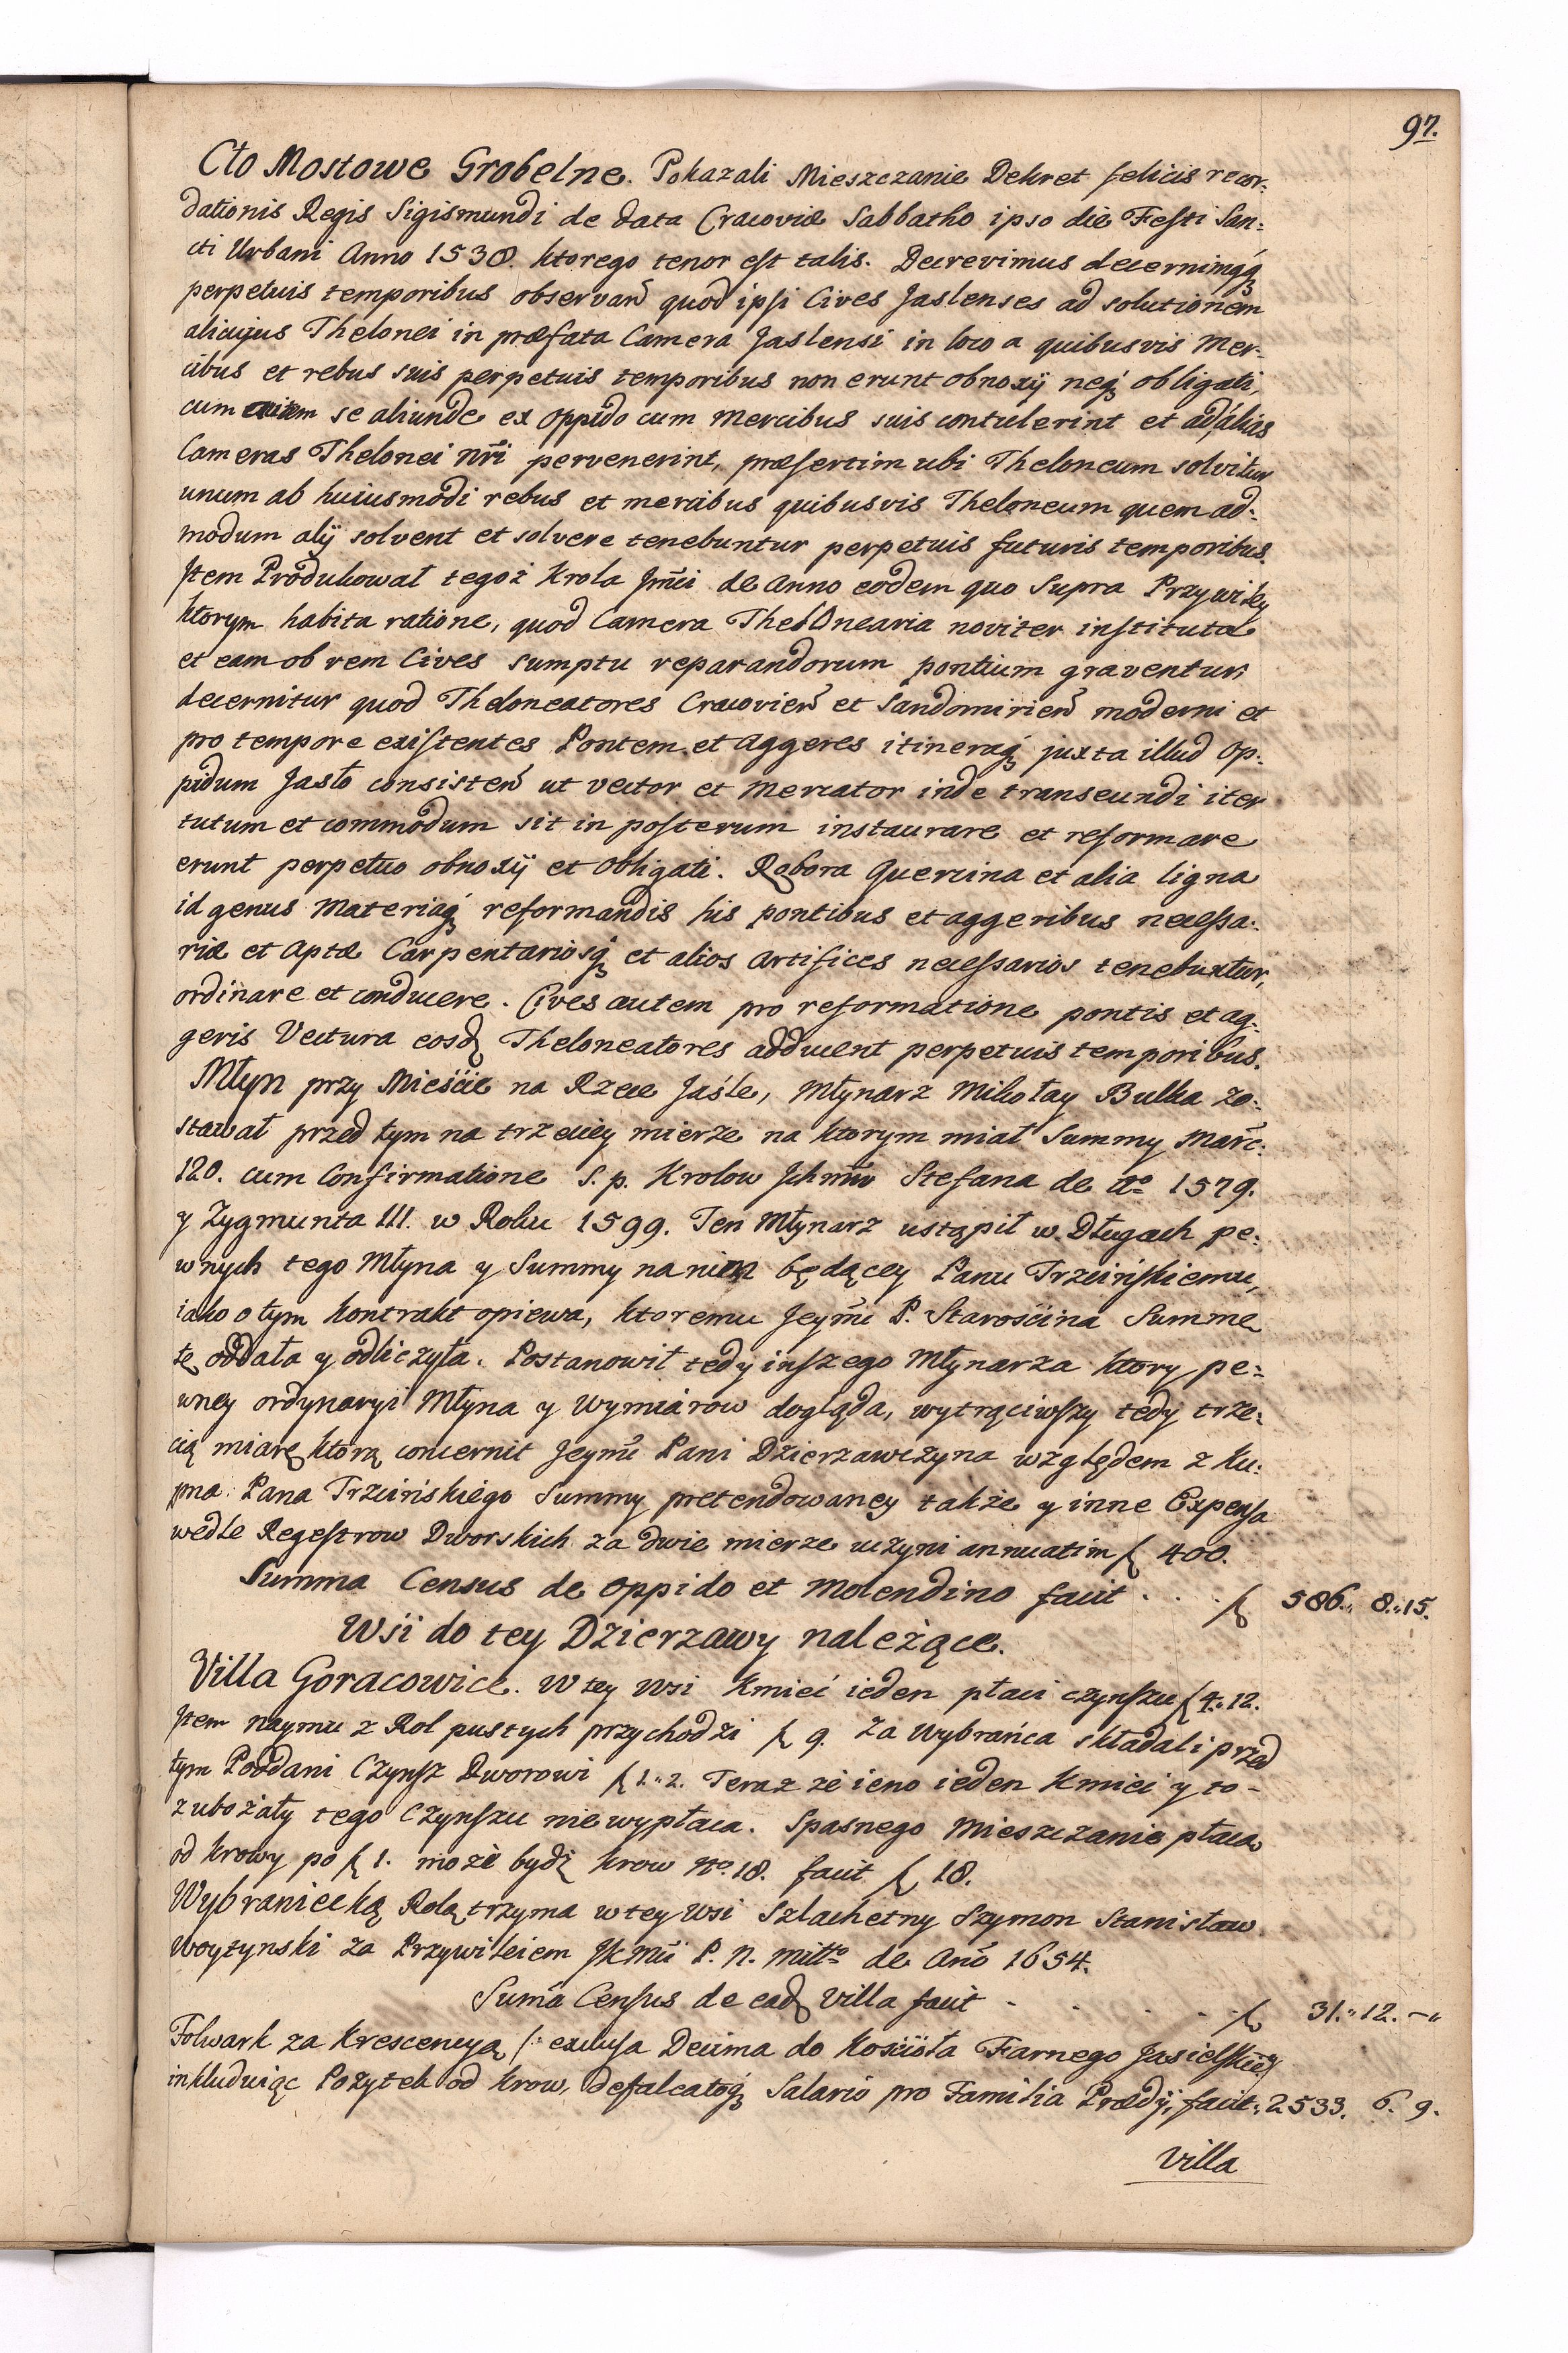 97.
Cto Mostowe Grobelne. Pokazali Mieszczanie Dekret felicis recor:
dationis Regis Sigismundi de data Cracoviæ Sabbatho ipso die Festi San:
cti Urbani Anno 1538. ktorego tenor est talis. Decrevimus decernimq́
perpetuis temporibus observan̄ quod ipsi Cives Jaslenses ad solutionem
alicujus Thelonei in præfata Camera Jaslensi in loco a quibusvis Mer:
cibus et rebus suis perpetuis temporibus non erunt obnoxij neq́ obligati,
cum autem se aliunde ex Oppido cum Mercibus suis contulerint et ad alias
Cameras Thelonei nr̄i pervenerint, præsertim ubi Theloneum solvitur
unum ab huiusmodi rebus et mercibus quibusvis Theloneum quem ad:
modum alij solvent et solvere tenebuntur perpetuis futuris temporibus.
Jtem Produkował tegoż Krola Jmći de Anno eodem quo Supra Przywiley
ktorym habita ratione, quod Camera Thelonearia noviter instituta
et eam ob rem Cives sumptu reparandorum pontium graventur,
decernitur quod Theloneatores Cracovien̄ et Sandomirien̄ moderni et
pro tempore existentes Pontem et Aggeres itineraq́ juxta illud Op:
pidum Jasło consisten̄ ut vector et Mercator inde transeundi iter
tutum et commodum sit in posterum instaurare et reformare
erunt perpetuo obnoxij et obligati. Robora Quercina et alia ligna
id genus Materiaq́ reformandis his pontibus et aggeribus necessa:
riæ et Aptæ Carpentariosq́ et alios Artifices necessarios tenebuntur,
ordinare et conducere. Cives autem pro reformatione pontis et ag:
geris Vectura eosd. Theloneatores adducent perpetuis temporibus.
Młyn przy Mieście na Rzece Jaśle, Młynarz Mikołay Bulka zo:
stawał przed tym na trzeciey mierze na ktorym miał Summy Marc:
120. cum Confirmatione S. p. Krolow Jchmw Stefana de Ao 1579.
y Zygmunta III. w Roku 1599. Ten Młynarz ustąpił w Długach pe:
wnych tego Młyna y Summy na nim będącey Panu Trzcińskiemu,
iako o tym Kontrakt opiewa, ktoremu Jeymći P. Starościna Summę
tę oddała y odliczyła. Postanowił tedy inszego Młynarza ktory pe:
wney ordynaryi Młyna y Wymiarow dogląda, wytrąciwszy tedy trze:
cią miarę ktorą concernit Jeymć Pani Dzierzawczyna względem z ku:
pna Pana Trzcińskiego Summy pretendowaney także y inne Expensa
wedle Regestrow Dworskich za dwie mierze uczyni annuatim f 400.
Summa Census de Oppido et Molendino facit . . . f 586.. 8..15.
Wsi do tey Dzierzawy należące.
Villa Goracowice. W tey Wsi Kmieć ieden płaci czynszu f 4..12.
Jtem Naymu z Rol pustych przychodzi f 9. Za Wybrańca składali przed
tym Poddani Czynsz Dworowi f 1..2. Teraz że ieno ieden Kmieć y to -
zubożały tego Czynszu nie wypłaca. Spasnego Mieszczanie płacą
od Krowy po f 1. może bydź Krow No. 18. facit f 18.
Wybraniecką Rolą trzyma w tey Wsi Szlachetny Szymon Stanisław
Woyzynski za Przywileiem JKMći P. N. Mttgo de Ano 1654.
Suma Census de ead. Villa facit . . . . f 31..12.-..
Folwark za Krescencyą /: exclusa Decima do Kościoła Farnego Jasielskiey
inkluduiąc Pozytek od Krow, defalcatoq́ Salario pro Familia Prædij, facit: 2533. 6. 9.
Villa